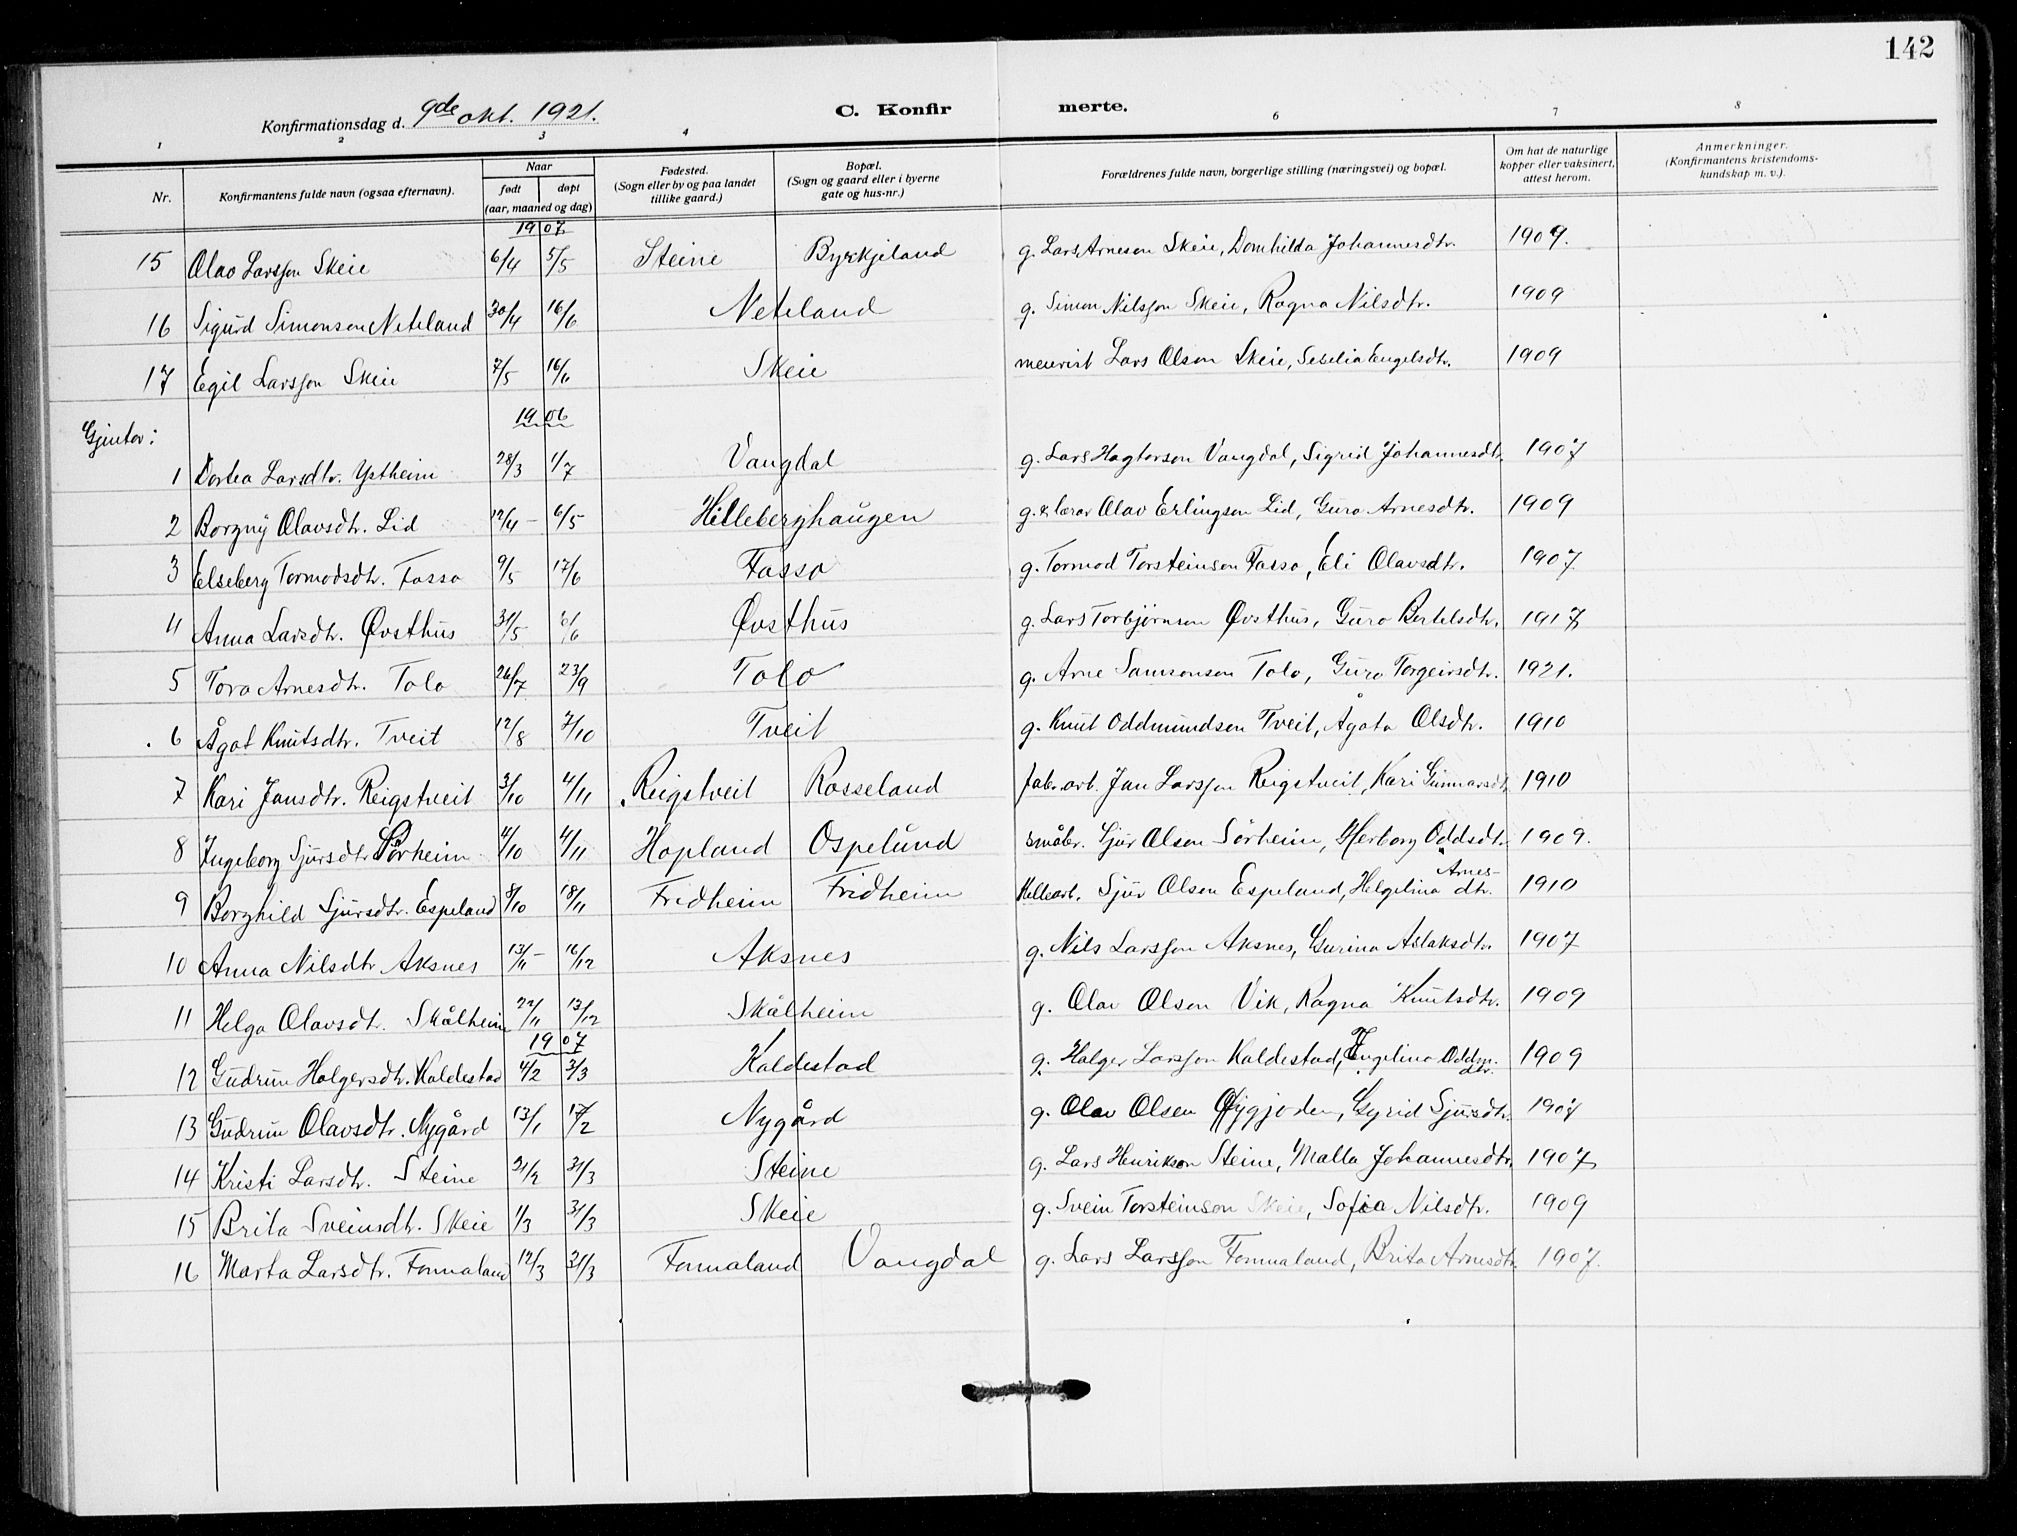 142
Konfirmationsdag d. 9de okt. 1921.
C. Konfirmerte.
1 2 3 4 6 7 8
Nr. Konfirmantens fulde navn (ogsaa efternavn). Naar født døpt (aar, maaned og dag) Fødested. (Sogn eller by og paa landet tillike gaard.) Bopæl. (Sogn og gaard eller i byerne gate og hus-nr.) Forældrenes fulde navn, borgerlige stilling (næringsvei) og bopæl. Om hat de naturlige kopper eller vaksinert, attest herom. Anmerkninger. (Konfirmantens kristendomskundskap m. v.).
1907
15 Olav Larsson Skeie 6/4 5/5 Steine Byrkjeland g. Lars Arneson Skeie, Domhilda Johannesdtr. 1909.
16 Sigurd Simonson Neteland 30/4 16/6 Neteland g. Simon Nilsson Skeie, Ragna Nilsdtr. 1909
17 Egil Larsson Skeie 7/5 16/6 Skeie meierist Lars Olson Skeie, Sebelia Engelsdtr. 1909
Gjentor:
1906
1 Dortea Larsdtr. Ystheim 28/3 1/7 Vangdal g. Lars Hagtorson Vangdal, Sigrid Johannesdtr. 1907
2 Borgny Olavsdtr. Lid 12/4 - 6/5 Hilleberghaugen g. & lærar Olav Erlingson Lid, Guro Arnesdtr. 1909
3 Elseberg Tormodsdtr. Tasso 9/5 17/6 Tasso g. Tormod Torsteinson Tasso, Eli Olavsdtr. 1907
4 Anna Larsdtr. Øvsthus 31/5 /6 Øvsthus g. Lars Torbjørnson Øvsthus, Guro Bertelsdtr. 1917
5 Tora Arnesdtr. Tolo 26/7 23/9 Tolo g. Arne Samsonson Tolo, Guro Torgeirsdtr. 1921.
6 Ågot Knutsdtr. Tveit 12/8 7/10 Tveit g. Knut Oddmundson Tveit, Ågota Olsdtr. 1910
7 Kari Jansdtr. Reigstveit 3/10 4/11 Reigstveit Rosseland fabr.arb. Jan Larsson Reigstveit, Kari Gunnarsdtr. 1910
8 Ingeborg Sjursdtr. Sörheim 4/10 4/11 Hopland Ospelund småbr. Sjur Olson Sörheim, Herborg Oddsdtr. 1909.
9 Borghild Sjursdtr. Espeland 8/10 18/11 Fridheim Fridheim Hellearb. Sjur Olsen Espeland, Helgelina Arnesdtr. 1910
10 Anna Nilsdtr Aksnes 13/11 - 16/12 Aksnes g. Nils Larsson Aksnes, Gurina Aslaksdtr. 1907
11 Helga Olavsdt. Skålheim 22/11 13/12 Skålheim g. Olav Olson Vik, Ragna Knutsdtr. 1909
1907
12 Gudrun Holgersdtr. Kaldestad 4/2 3/3 Kaldestad g. Holger Larsson Kaldestad, Engelina Oddm.dtr. 1909
13 Gudrun Olavsdtr. Nygård 13/1 17/2 Nygård g. Olav Olsen Øygjoden, Gyrid Sjursdtr. 1907
14 Kristi Larsdtr. Steine 21/2 31/3 Steine g. Lars Henrikson Steine, Malla Johannesdtr. 1907
15 Brita Sveinsdtr. Skeie 1/3 31/3 Skeie g. Svein Torsteinson Skeie, Sofia Nilsdtr. 1909
16 Marta Larsdtr. Fonnaland 12/3 31/3 Fonnaland Vangdal g. Lars Larsson Fonnaland, Brita Arnesdtr. 1907.